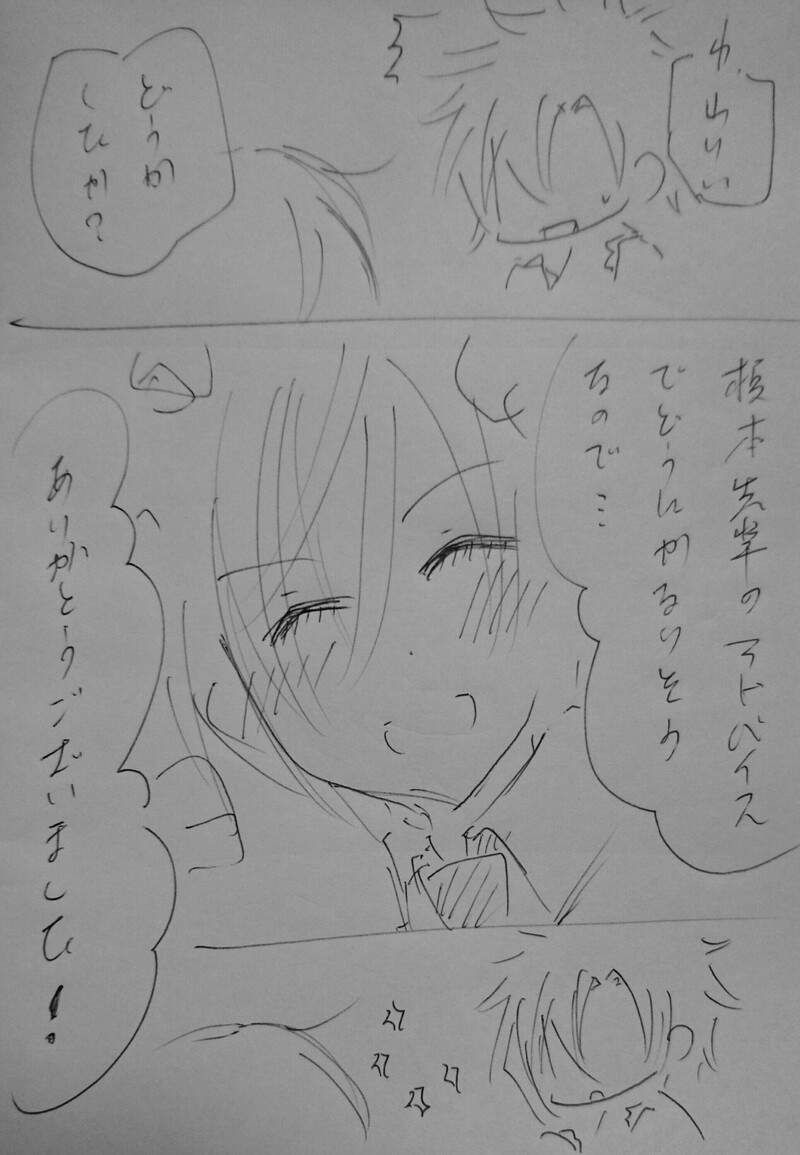 どうか
したか?
榎本先輩のアドバイス
でどうにかなりそう
なので…
ありがとうございました!